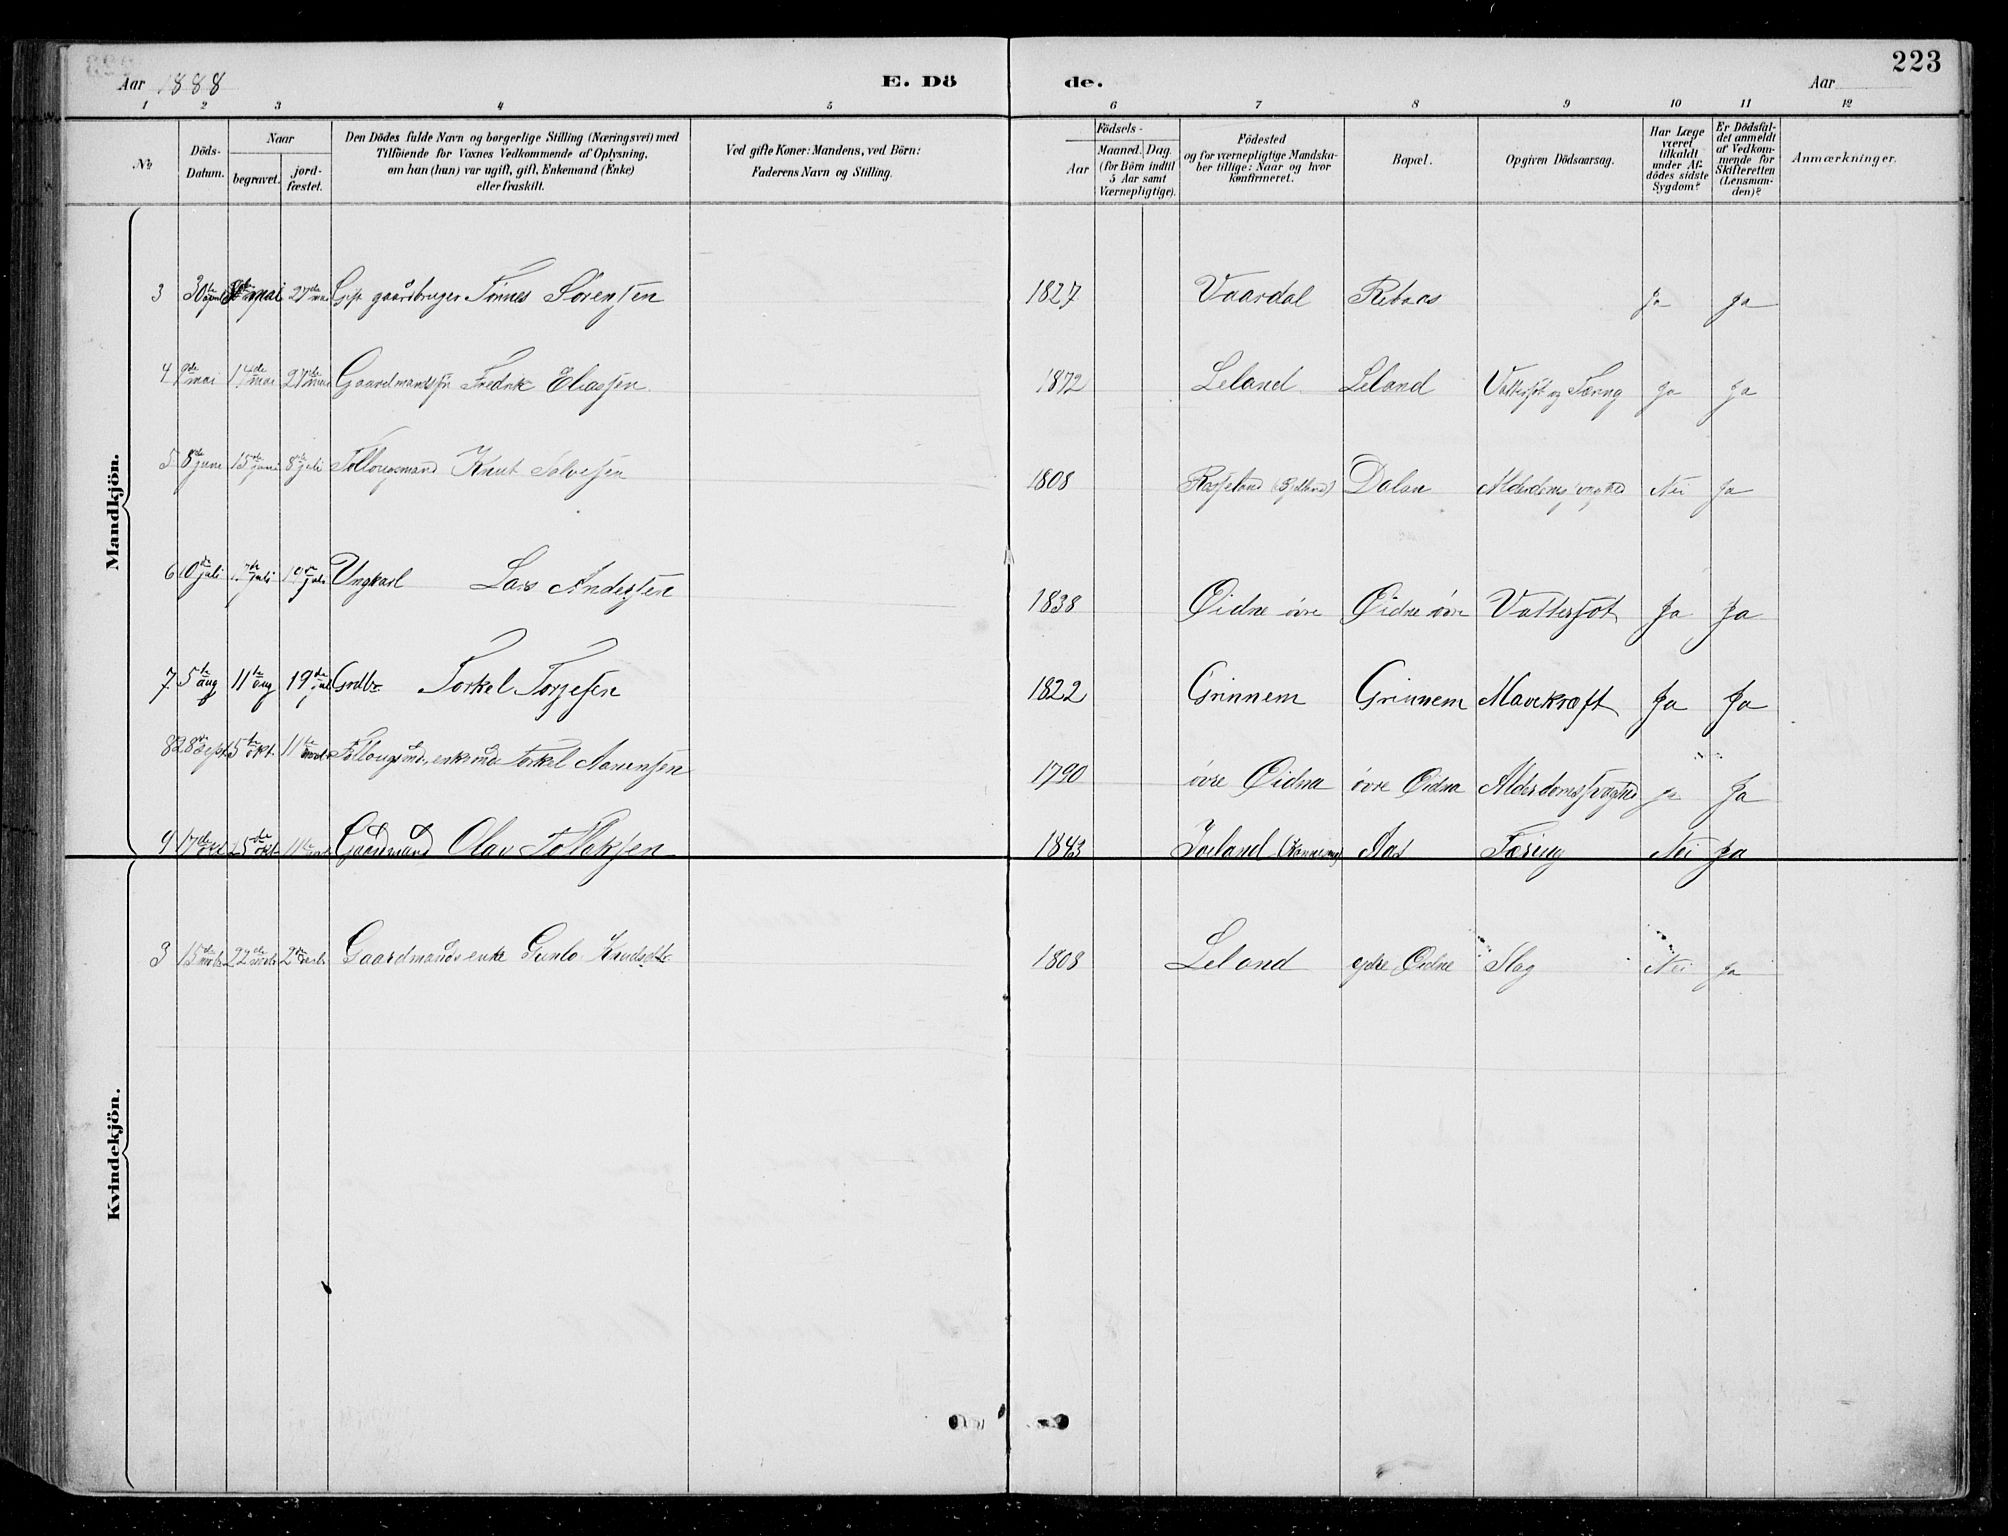 223
Aar 1888 E. Dö de. Aar
1 2 3 4 5 6 7 8 9 10 11 12
№
Döds-Datum.
Naar
begravet.
jordfæstet.
Den Dödes fulde Navn og borgerlige Stilling (Næringsvei) med
Tilföiende for Voxnes Vedkommende af Oplysning,
om han (hun) var ugift, gift, Enkemand (Enke)
eller fraskilt.
Ved gifte Koner: Mandens, ved Börn:
Faderens Navn og Stilling.
Födsels-
Aar
Maaned. Dag.
(for Börn indtil
5 Aar samt
Værnepligtige).
Födested
og for værnepligtige Mandska-
ber tillige: Naar og hvor
konfirmeret.
Bopæl.
Opgiven Dödsaarsag.
Har Læge
været
tilkaldt
under Af-
dödes sidste
Sygdom?
Er Dödsfal-
det anmeldt
af Vedkom-
mende for
Skifteretten
(Lensman-
den)?
Anmærkninger.
Mandkjön.
3 30te april mai 27de mai Gift gaardbruger Tönnes Sörensen 1827 Vaardal Rebaas Ja Ja
4 9de mai 14de mai 27de mai Gaardmandssön Fredrik Eliassen 1872 Leland Leland Vattersot og Tæring Ja Ja
5 8de juni 15de juni 8de juli Follougsmand Knut Salvesen 1808 Rosseland (Bjelland) Dalan Alderdoms Nei Ja
6 10de juli 17de juli juli Ungkarl Lars Andersen 1838 Øidne övre Øidne övre Vattersot Ja Ja
7. 5te aug 11te aug 19de Grdbr Torkel Torjesen 1822 Grinnem Grinnem Mavekræft Ja Ja
8 28de sept 5te okt. 11te enkemd Torkel Aanensen 1790 övre Øidna övre Øidna Alderdomssvaghed ja Ja
9 17de okt 25de okt. 11te Gaardmand Olav Tollaksen 1843 Aas Tæring Nei Ja
Kvindekjön.
3 15de novbr 22de novbr 2den Gaardmands enke Gunlo Knudsdtr 1808 Leland Øidne Slag Nei ja